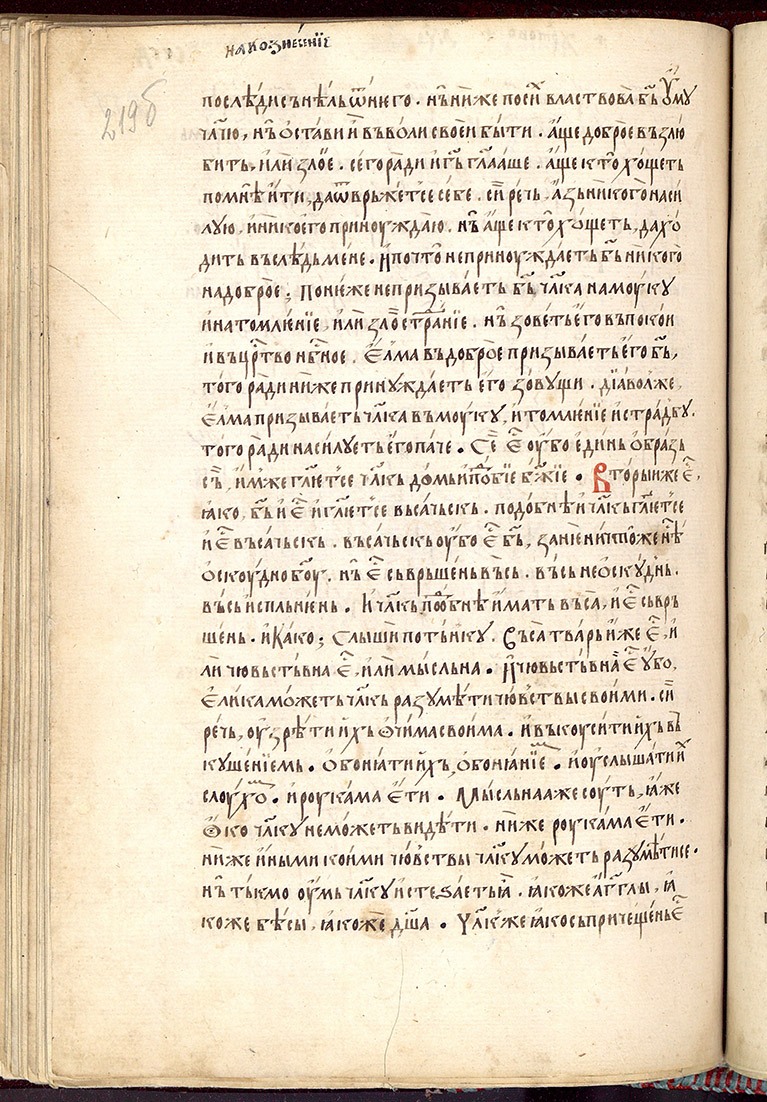 на вознесенїе
219б
послѣдисънѣльѿнѥго . нъ҆ниже посиⷯ властвова бъ҃ ѹмꙋ
чл҃чю, нъ҆ остави и҆ въволи своеи бꙑти . аще доброе възлю
бить, или злое . сего ради и гь҃ гл҃ааше . аще кто хощеть
помнѣ ити, да ѿвръжетсе себе . си҆ рѣчь , азъ никого наси
лую, и никоего приноуждаю . нъ҆ аще кто хощеть, да хо
дить въслѣдь мене . И почто не приноуждаеть бъ҃ никого
на доброе ; понѥже не призываеть бъ҃ чл҃ка на моукꙋ
и на томлѥнїе, или злоⷭ҇страⷣнїе . нъ҆ зоветь его въ покои
и въ црⷭ҇тво нбⷭ҇ное . Елма въ доброе призываеть его бъ҃,
того ради ниже принꙋждаеть его зовꙋщи . дїаволже,
елма призываеть чл҃ка въ моукꙋ, и томлѥнїе и страдбꙋ .
того ради насилуеть его паче . Се еⷭ҇ оубо единь образь
съ҆, имже гл҃ѥтсе чл҃кь домь и поⷣбїе бж҃їе . Вторыи же еⷭ҇,
ꙗко бъ҃ и еⷭ҇ и гл҃ѥтсе въсачьскъ . подобнѣ и чл҃кь гл҃ѥтсе
и еⷭ҇ въсачьскъ . въсачьскь оубо еⷭ҇ бъ҃, занѥ никтоже нѣⷭ҇
оскоудно бг҃оу . нъ҆ еⷭ҇ съврьшень въсь . въсь неоскꙋднь .
въсь исплънѥнь . И чл҃кь поⷣобнѣ имать въса, и еⷭ҇ съвръ
шень . и како ; слыши потънкꙋ . Въса тварь иже еⷭ҇, и
ли чювьствна еⷭ҇, или мысльна . И чювьствнаа еⷭ҇ убо,
елика можеть чл҃кь разꙋмѣти чювⷭ҇твы своими . си҆
рѣчь, оузрѣти ихъ очима своима . и въкоусити ихъ въ
кушенїемь . обонꙗти ихъ обонꙗнїеⷨ . и оуслышати иⷯ
слоухоⷨ . и роукама ети . Мысльнаа же соуть, ꙗже
око чл҃кꙋ не можеть видѣти . ниже роукама ети .
ниже иными коими чювⷭ҇твы чл҃кꙋ можеть разꙋмѣтисе .
нъ҆ тъкмо оумь чл҃кꙋ истеѕаеть ꙗ . ꙗкоже агг҃лы, ꙗ
коже бѣсы, ꙗкоже дш҃а . Чл҃кже ꙗко съпричещень еⷭ҇